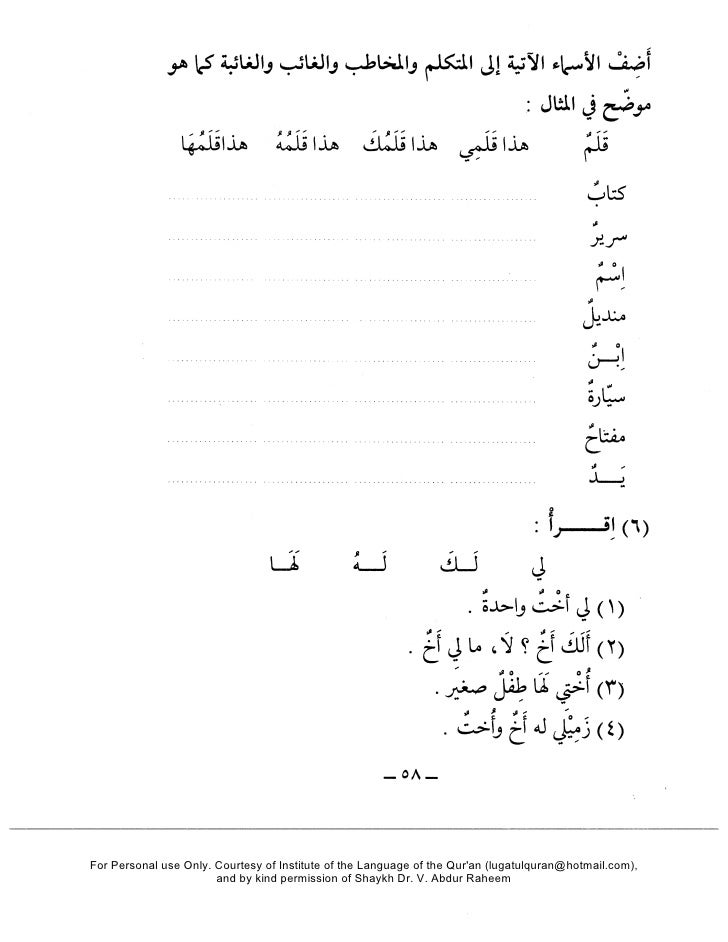 أَضِفْ الأسماء الآتية إلى المتكلم والمخاطب والغائب والغائبة كما هو
موضّح في المثال :
قَلَمٌ هذا قَلَمِي هذا قَلَمُكَ هذا قَلَمُهُ هذا قَلَمُهَا
كتابٌ
سريرٌ
اِسْمٌ
منديلٌ
اِبْــنٌ
سيّارةٌ
مفتاحٌ
يَــدٌ
(٦) اِقــــرأْ :
لي لَــكَ لَــهُ لَهَــا
(١) لي أخْتٌ واحدةٌ .
(٢) أَلَكَ أَخٌ ؟ لَا، ما لِي أَخٌ .
(٣) أُخْتِي لَهَا طِفْلٌ صغير .
(٤) زَمِيْلِي له أَخٌ وأُختٌ .
– ٥٨ –
For Personal use Only. Courtesy of Institute of the Language of the Qur'an (lugatulquran@hotmail.com),
and by kind permission of Shaykh Dr. V. Abdur Raheem